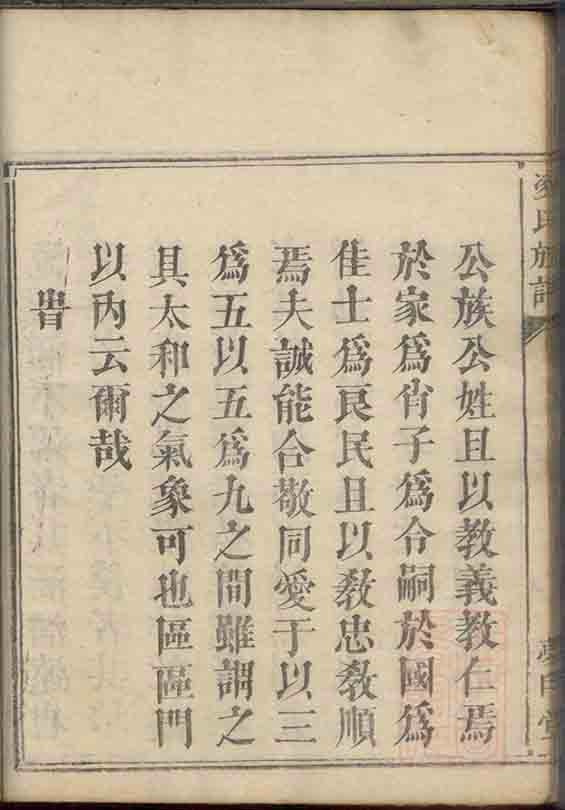 公族公姓且以教義教仁焉
於家爲肖子爲令嗣於國爲
佳士爲良民且以敎忠敎順
焉夫誠能合敬同愛于以三
爲五以五爲九之間雖謂之
具太和之氣象可也區區門
以內云爾哉
旹
氏族譜
堂